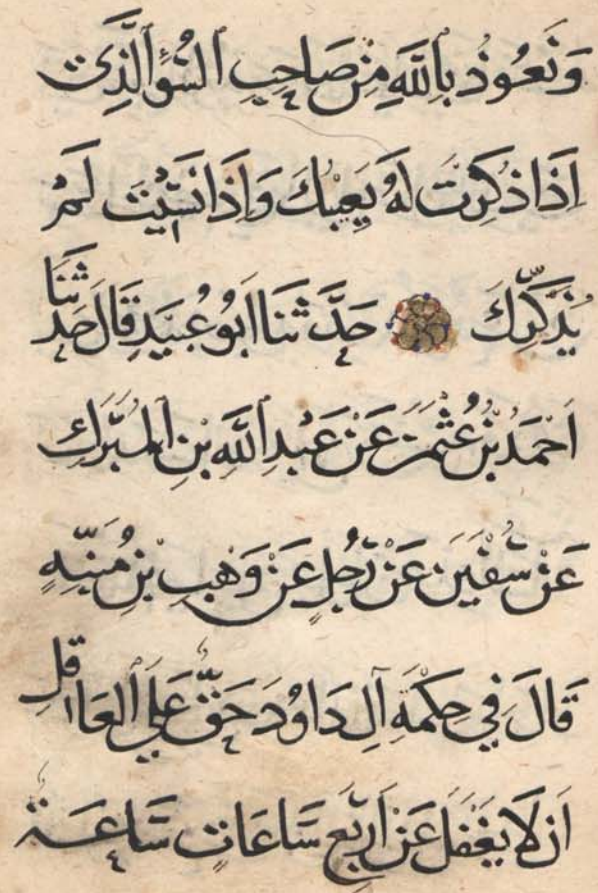 وَنَعُوذُ بِاللَّهِ مِنْ صَاحِبِ السُّوْءِ الَّذِي
اِذَا ذَكَرْتَ لَهُ يُعِبْكَ وَاِذَا نَسِيْتَ لَمْ
يُذَكِّرْكَ حَدَّثَنَا اَبُو عُبَيْدٍ قَالَ حَدَّثَنَا
اَحْمَدُ بْنُ عُثْمٰنَ عَنْ عَبْدِ اللَّهِ بْنِ الْمُبٰرَكِ
عَنْ سُفْيٰنَ عَنْ رَجُلٍ عَنْ وَهْبِ بْنِ مُنَبِّهٍ
قَالَ فِي حِكْمَةِ آلِ دَاوُدَ حَقٌّ عَلَى الْعَاقِلِ
اَنْ لَا يَغْفَلَ عَنْ اَرْبَعِ سَاعَاتٍ سَاعَةٌ